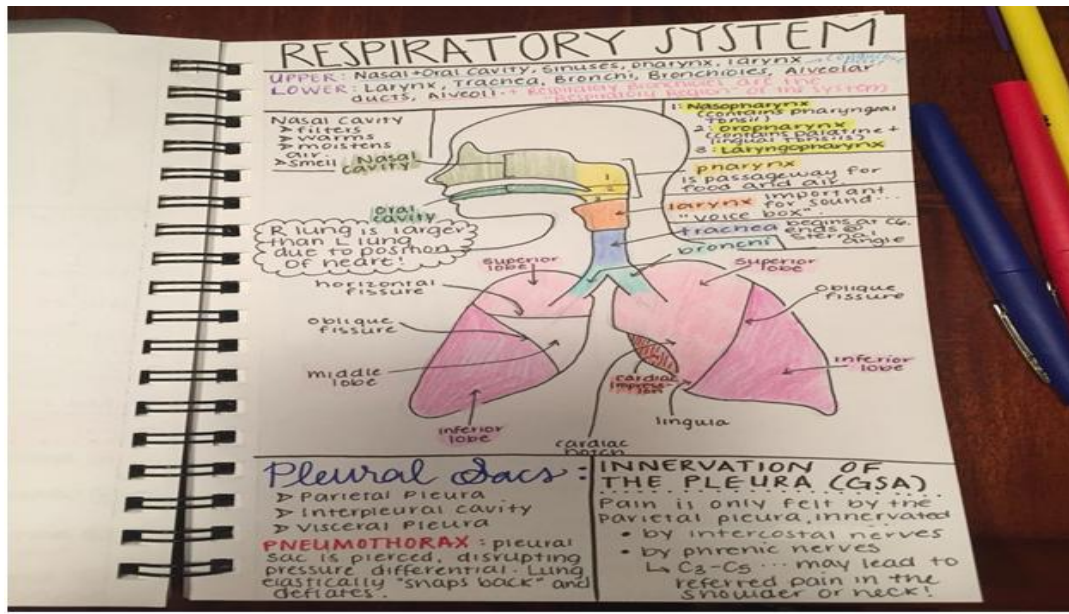 RESPIRATORY SYSTEM
UPPER: Nasal + Oral Cavity, Sinuses, pharynx, larynx
LOWER: Larynx, Trachea, Bronchi, Bronchioles, Alveolar
ducts, Alveoli + Respiratory Bronchioles are the
"Respiratory Region" of the system
Nasal cavity
> filters
> warms
> moistens
air.
> smell
Nasal
cavity
oral
cavity
1: Nasopharynx
(contains pharyngeal
tonsil)
2: oropharynx
(contains palatine +
lingual tonsils)
3: Laryngopharynx
1
2
3
pharynx
is passageway for
food and air.
larynx important
for sound...
"voice box".
trachea begins at C6.
ends @
sternal
angle
bronchi
R lung is larger
than L lung
due to position
of heart!
superior
lobe
horizontal
fissure
oblique
fissure
middle
lobe
inferior
lobe
superior
lobe
oblique
fissure
inferior
lobe
cardiac
impress-
ion
lingula
cardiac
notch
Pleural Sacs:
> Parietal Pleura
> Interpleural cavity
> Visceral Pleura
PNEUMOTHORAX: pleural
sac is pierced, disrupting
pressure differential. Lung
elastically "snaps back" and
deflates.
INNERVATION OF
THE PLEURA (GSA)
Pain is only felt by the
parietal pleura, innervated
• by intercostal nerves
• by phrenic nerves
↳ C3-C5 ... may lead to
referred pain in the
shoulder or neck!